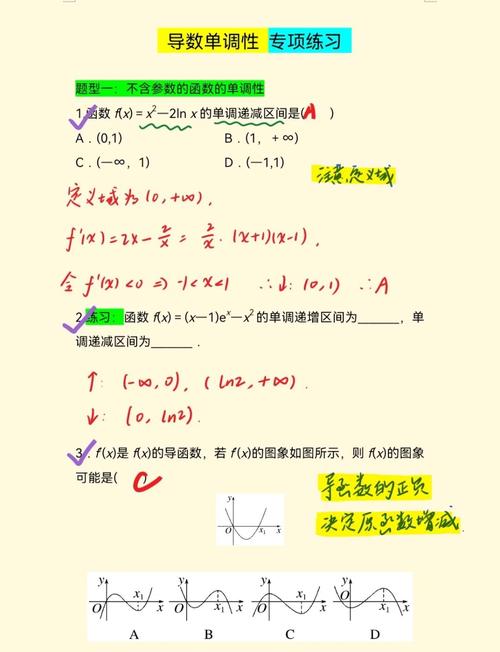 导数单调性 专项练习
题型一：不含参数的函数的单调性
1.函数 f(x)=x²—2ln x 的单调递减区间是( A )
A．(0,1) B．(1，+∞)
C．(—∞，1) D．(—1,1)
注意定义域
定义域为(0,+∞),
f'(x)=2x-2/x=2/x·(x+1)(x-1),
令f'(x)<0⇒-1<x<1 ∴↓:(0,1) ∴A
2.练习：函数 f(x)=(x—1)eˣ—x² 的单调递增区间为______，单
调递减区间为______．
↑: (-∞,0), (ln2,+∞).
↓: (0,ln2).
3．f′(x)是 f(x)的导函数，若 f′(x)的图象如图所示，则 f(x)的图象
可能是( C
导函数的正负
决定原函数增减
y
O x₁ x
y x₁ y y y x₁
O x O x₁ x O x₁ x O x
A B C D